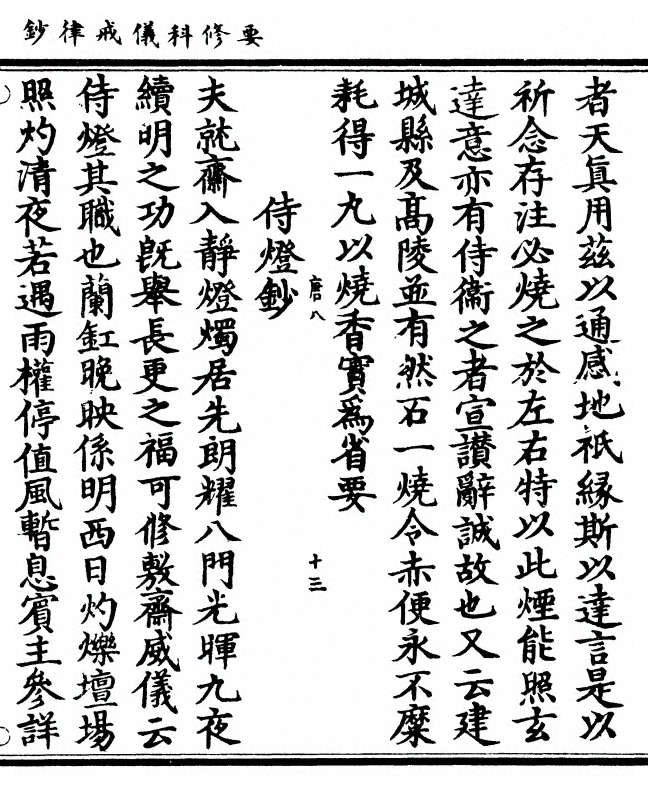 要修科儀戒律鈔
者天真用茲以通感地祇緣斯以達言是以
祈念存注必燒之於左右特以此煙能照玄
達意亦有侍衞之者宣讃辭誠故也又云建
城縣及髙陵並有然石一燒令赤便永不糜
耗得一九以燒香實爲省要
唐八
十三
侍燈鈔
夫就齋入靜燈燭居先朗耀八門光暉九夜
續明之功旣舉長更之福可修敷齋威儀云
侍燈其職也蘭缸晚映係明西日灼爍壇場
照灼清夜若遇雨權停值風暫息賓主參詳